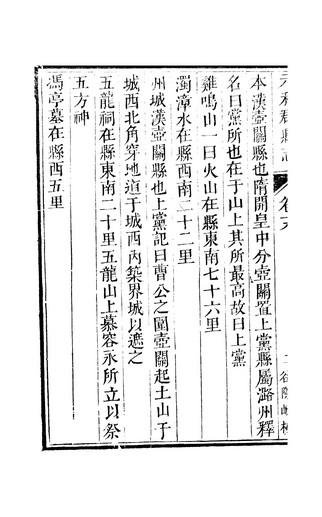 本漢壺關縣也隋開皇中分壺關置上黨縣屬潞州釋
名曰黨所也在于山上其所最高故曰上黨
雞鳴山一曰火山在縣東南七十六里
濁漳水在縣西南二十二里
州城漢壺關縣也上黨記曰曹公之圍壺關起土山于
城西北角穿地道于城西內築界城以遮之
五龍祠在縣東南二十里五龍山上慕容永所立以祭
五方神
馮亭墓在縣西五里